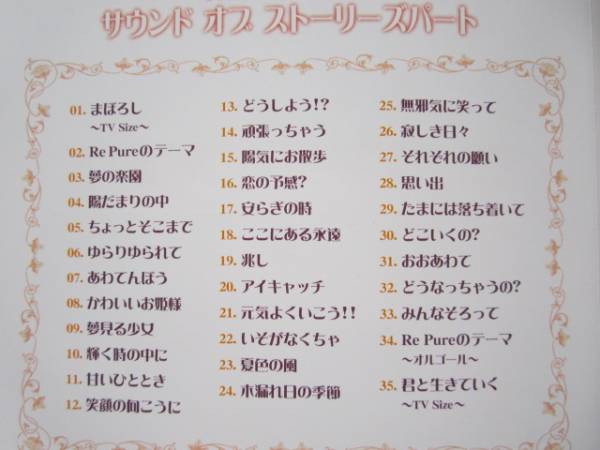 サウンド オブ ストーリーズパート
01. まぼろし
～TV Size～
02. Re Pureのテーマ
03. 夢の楽園
04. 陽だまりの中
05. ちょっとそこまで
06. ゆらりゆられて
07. あわてんぼう
08. かわいいお姫様
09. 夢見る少女
10. 輝く時の中に
11. 甘いひととき
12. 笑顔の向こうに
13. どうしよう!?
14. 頑張っちゃう
15. 陽気にお散歩
16. 恋の予感?
17. 安らぎの時
18. ここにある永遠
19. 兆し
20. アイキャッチ
21. 元気よくいこう!!
22. いそがなくちゃ
23. 夏色の風
24. 木漏れ日の季節
25. 無邪気に笑って
26. 寂しき日々
27. それぞれの願い
28. 思い出
29. たまには落ち着いて
30. どこいくの?
31. おおあわて
32. どうなっちゃうの?
33. みんなそろって
34. Re Pureのテーマ
～オルゴール～
35. 君と生きていく
～TV Size～